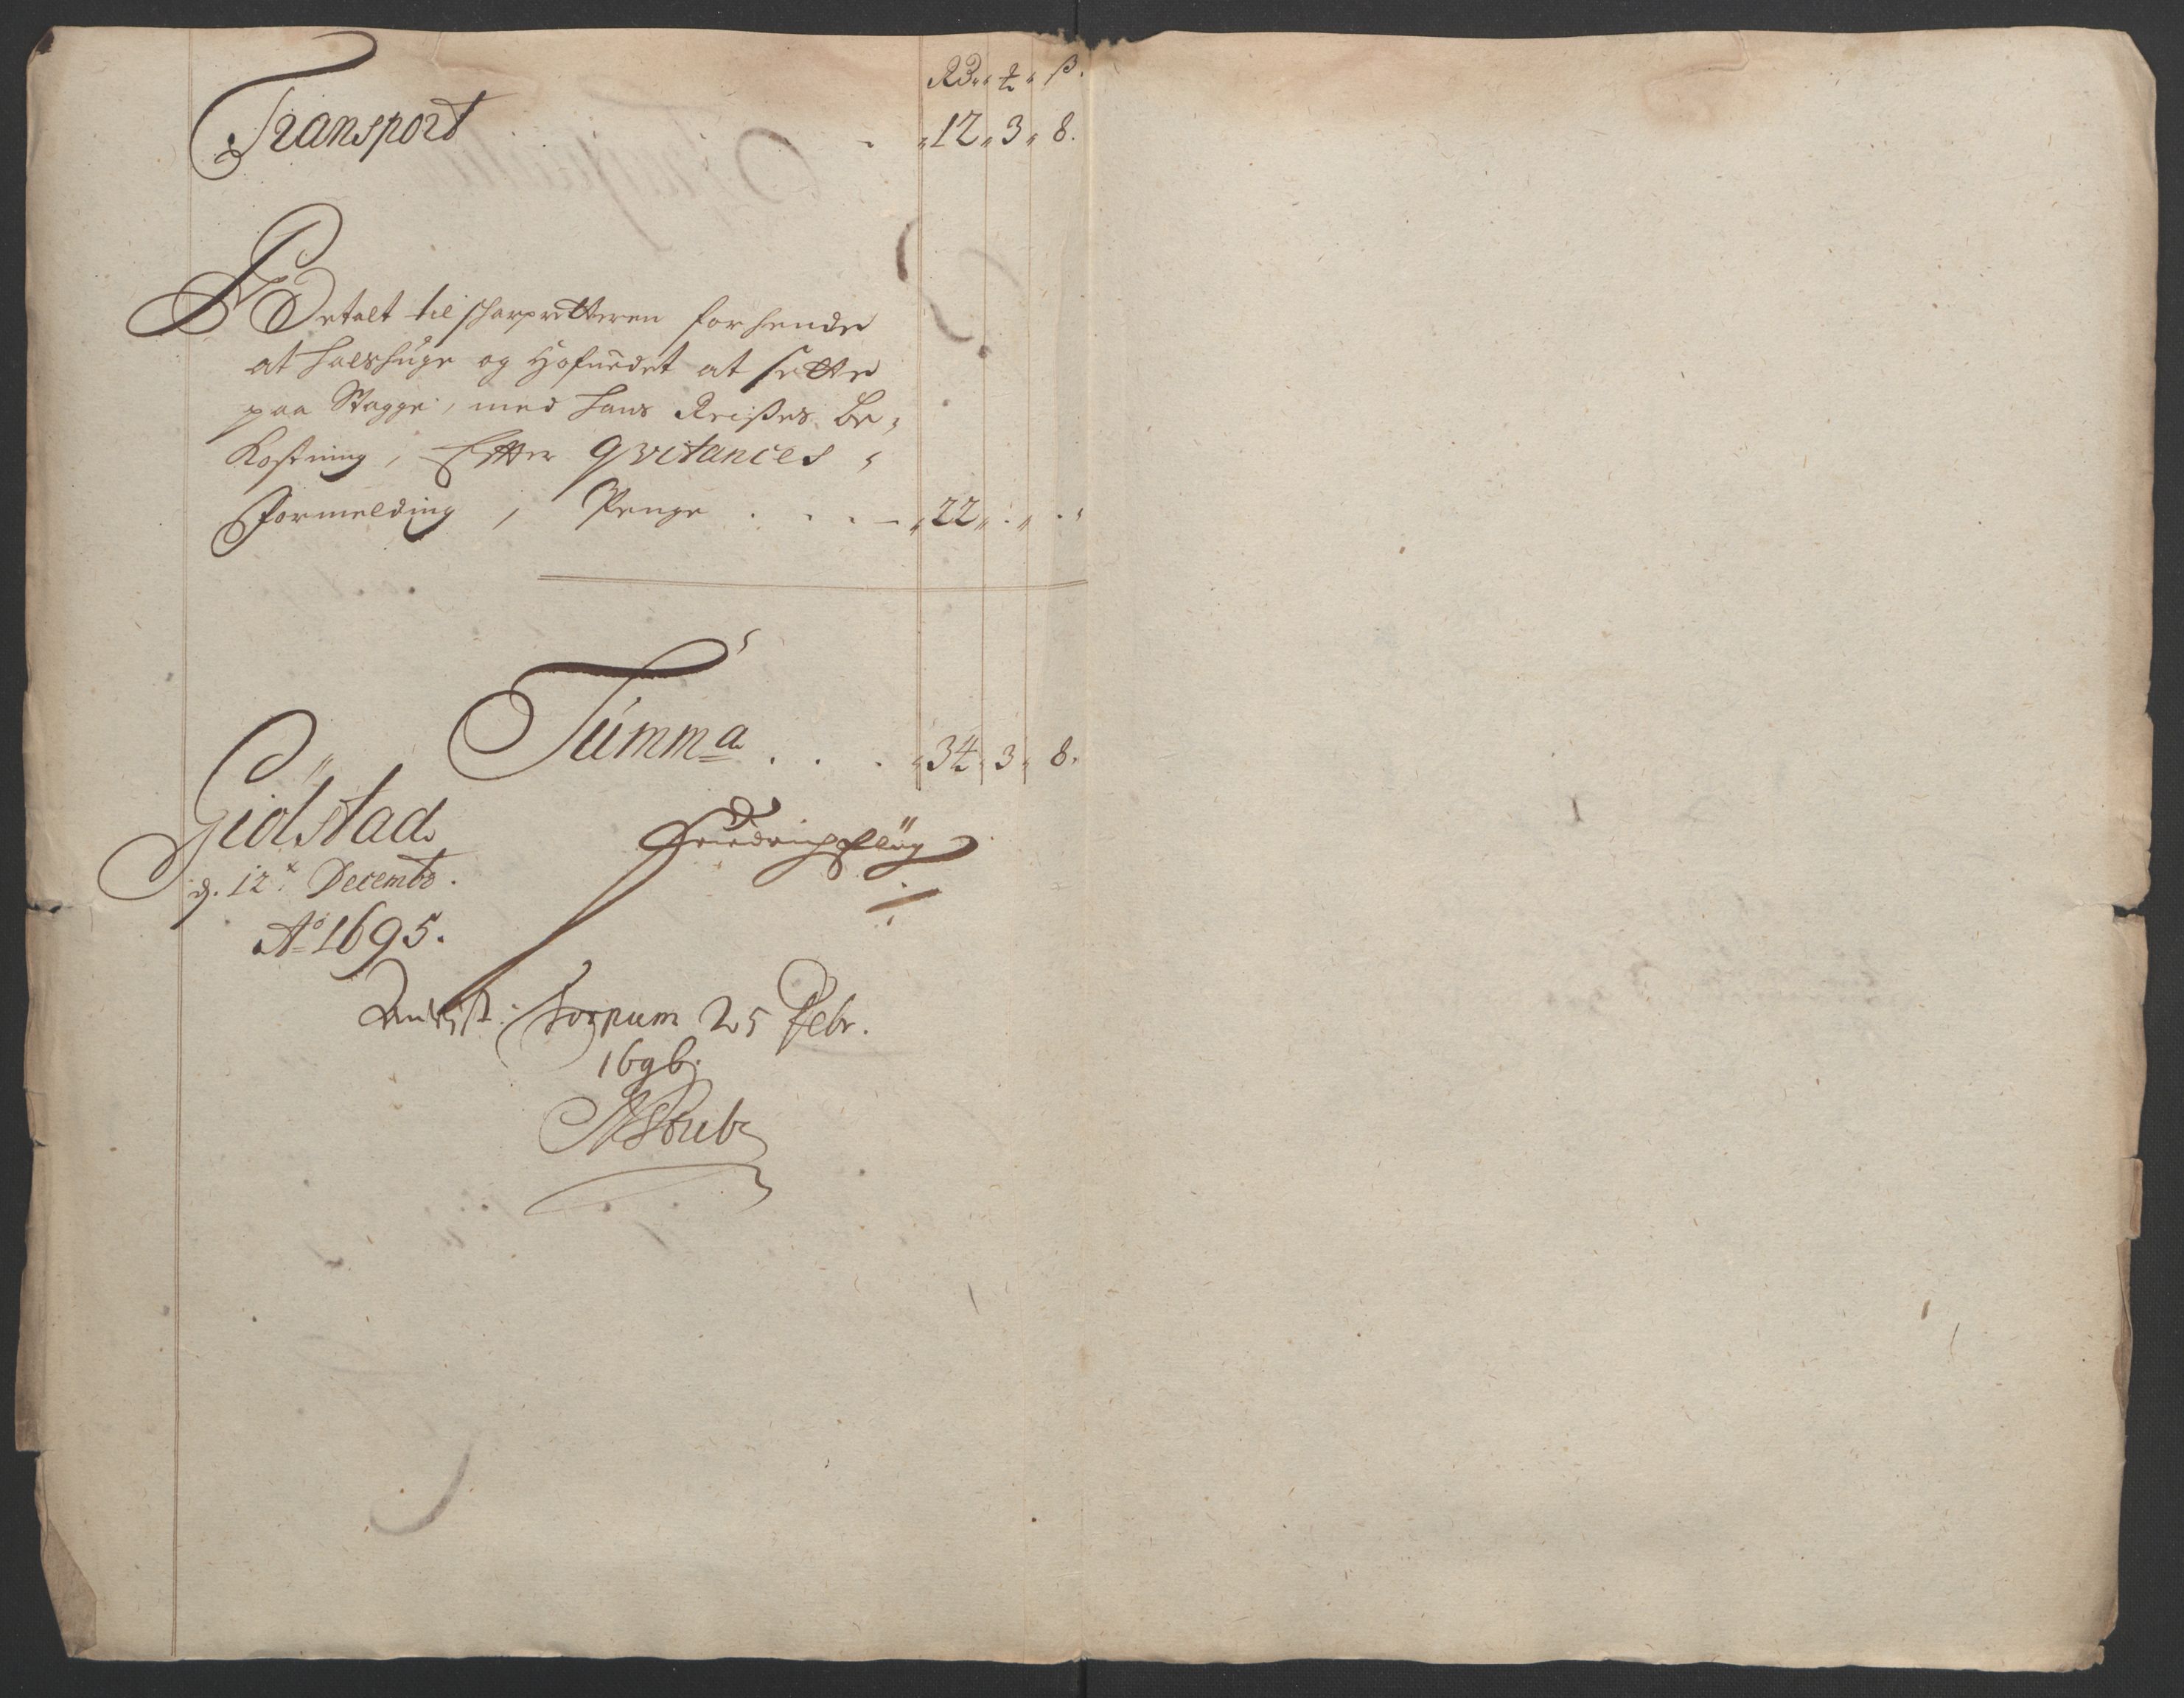 RDr. ʒ. ß.
Transport . „12„ 3„ 8.
Betalt til scharpretteren for hende
at halshuge og Hofuedet at sette
paa Stagge, med hans Reißes Be-
Kostning, Efter Qvitances
Formelding, Penge . . . . „22„ . „ .
Summa . . . „34„ 3„ 8.
Giölstad
d. 12t Decembr.
Ao 1695.
Friedrich Pflüg
Revist: Torpum 25 Febr.
1696.